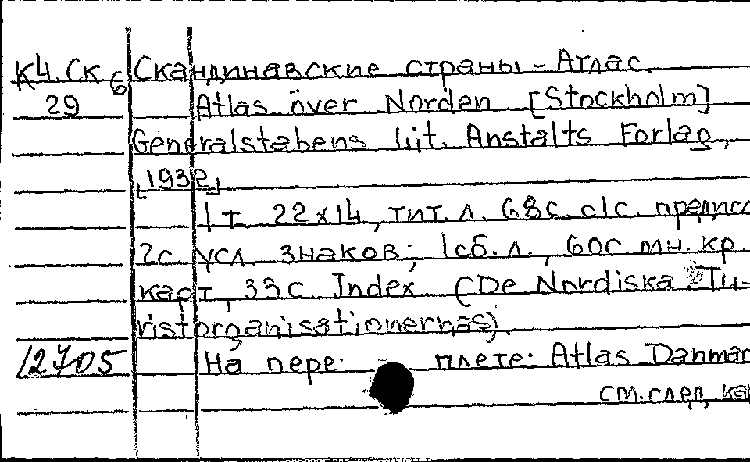 К4.Ск 6 Скандинавские страны - Атлас.
29 Atlas över Norden [Stockholm]
Generalstabens lit. Anstalts Forlag,
[1932]
1 т. 22x14, тит. л. 68с. с/с. предисс
2с усл. знаков; 1сб. л., 60с мн. кр.
карт, 33с. Index. (De Nordiska Tu-
ristorganisationernas).
12705 На пере- плете: Atlas Danmar
см. след. ка